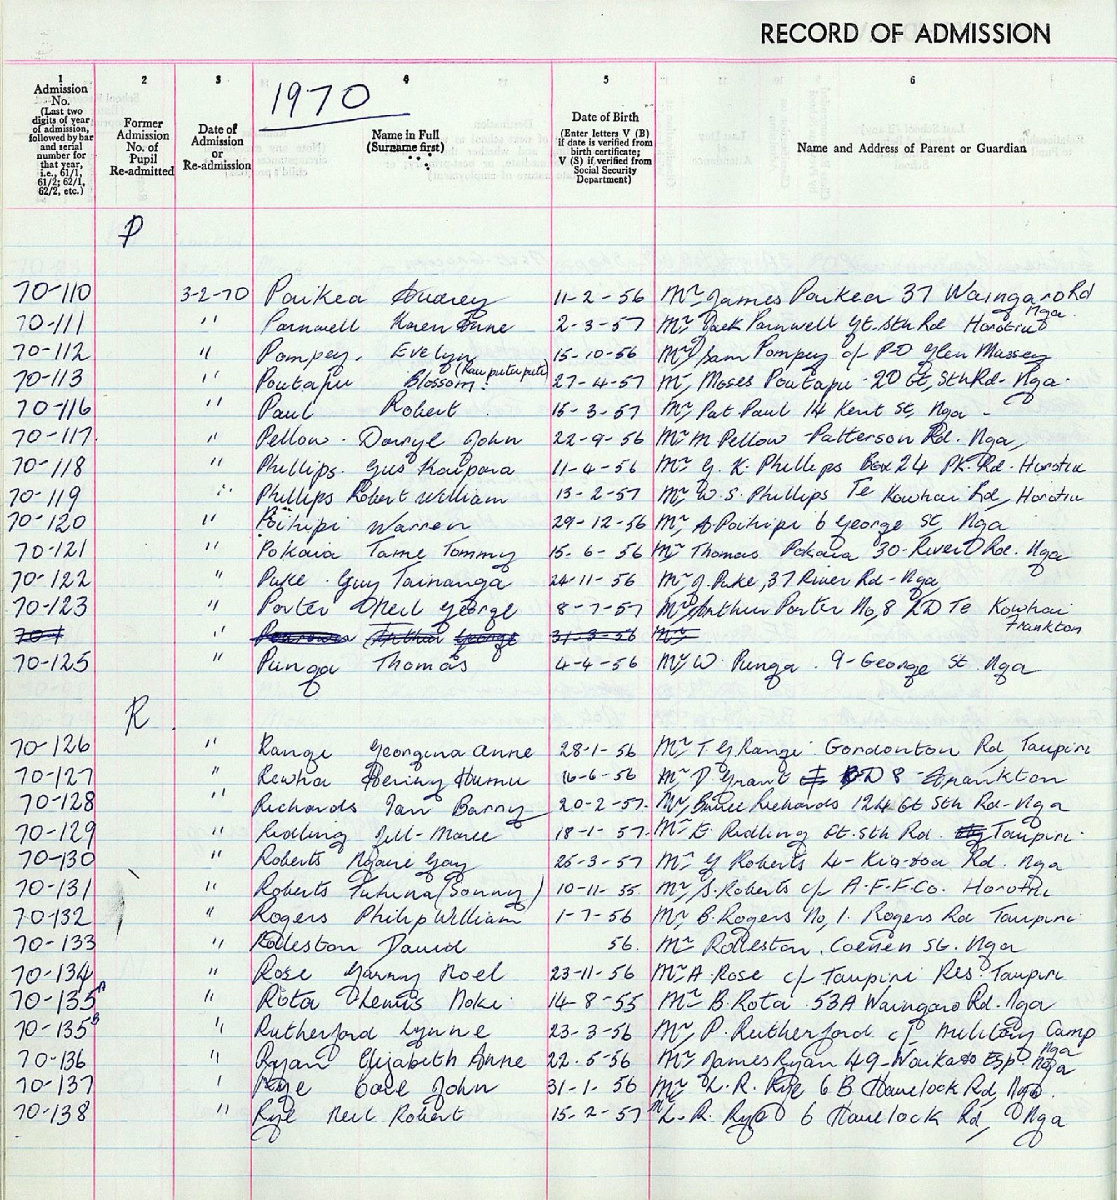 RECORD OF ADMISSION
1 2 3 4 5 6
Admission No. (Last two digits of year of admission, followed by bar and serial number for that year, i.e., 61/1, 61/2; 62/1, 62/2, etc.)
Former Admission No. of Pupil Re-admitted
Date of Admission or Re-admission
1970
Name in Full (Surname first)
Date of Birth (Enter letters V (B) if date is verified from birth certificate; V (S) if verified from Social Security Department)
Name and Address of Parent or Guardian
P
70-110 3-2-70 Paikea Audrey 11-2-56 Mr James Paikea 37 Waingaro Rd Nga
70-111 " Parnwell Karen Anne 2-3-57 Mr Jack Parnwell Gt. Sth Rd Horotiu
70-112 " Pompey. Evelyn 15-10-56 Mr Sam Pompey c/- P-O Glen Massey
70-113 " Poutapu Blossom. 27-4-57 Mr Moses Poutapu - 20 Gt, Sth Rd - Nga.
70-116 " Paul Robert 15-3-57 Mr Pat Paul 14 Kent St, Nga -
70-117. " Pellow. Darryl John 22-9-56 Mr M Pellow Patterson Rd. Nga,
70-118 " Phillips. Gus Kaipara 11-4-56 Mr G. K. Phillips Box 24 Pk. Rd. Horotiu
70-119 " Phillips Robert William 13-2-57 Mr W. S. Phillips Te Kowhai Rd, Horotiu
70-120 " Poihipi Warren 29-12-56 Mr A Poihipi 6 George St, Nga
70-121 " Pokaia Tame Tommy 15-6-56 Mr Thomas Pokaia 30-River Rd. Nga
70-122 " Puke Guy Tainanga 24-11-56 Mr J. Puke, 37 River Rd-Nga
70-123 " Porter Neil George 8-7-57 Mr Arthur Porter No, 8 RD Te Kowhai Frankton
" 31-3-56 Mr
70-125 " Punga Thomas 4-4-56 Mr W Punga. 9-George St. Nga
R
70-126 " Rangi Georgina Anne 28-1-56 Mr T. G Rangi Gordonton Rd, Taupiri
70-127 " Rewha 16-6-56 Mr D Grant RD 8 Frankton
70-128 " Richards Ian Barry 20-2-57. Mr Bruce Richards 124 Gt Sth Rd-Nga
70-129 " Ridling Jill-Maree 18-1-57. Mr E. Ridling Gt. Sth Rd. Taupiri.
70-130 " Roberts Ngaire Gay 25-3-57 Mr G Roberts 4- Rd. Nga
70-131 " Roberts (Sonny) 10-11-55 Mr S. Roberts c/- A-F-F-Co. Horotiu
70-132 " Rogers Philip William 1-7-56 Mr B. Rogers No, 1. Rogers Rd Taupiri
70-133 " Rolleston David 56. Mr Rolleston. Coenen St. Nga
70-134 " Rose Garry Noel 23-11-56 Mr A. Rose c/- Taupiri Res. Taupiri
70-135A " Rota Dennis Noki 14-8-55 Mr B. Rota 53A Waingaro Rd. Nga
70-135B " Rutherford Lynne 23-3-56 Mr P. Rutherford c/- Military Camp Nga
70-136 " Ryan Elizabeth Anne 22-5-56 Mr James Ryan 49-Waikato Esp Nga
70-137 " Rye Cole John 31-1-56 Mr L. R. Rye 6 B Havelock Rd, Nga.
70-138 " Rye Neil Robert 15-2-57 Mr L. R. Rye 6 Havelock Rd, Nga